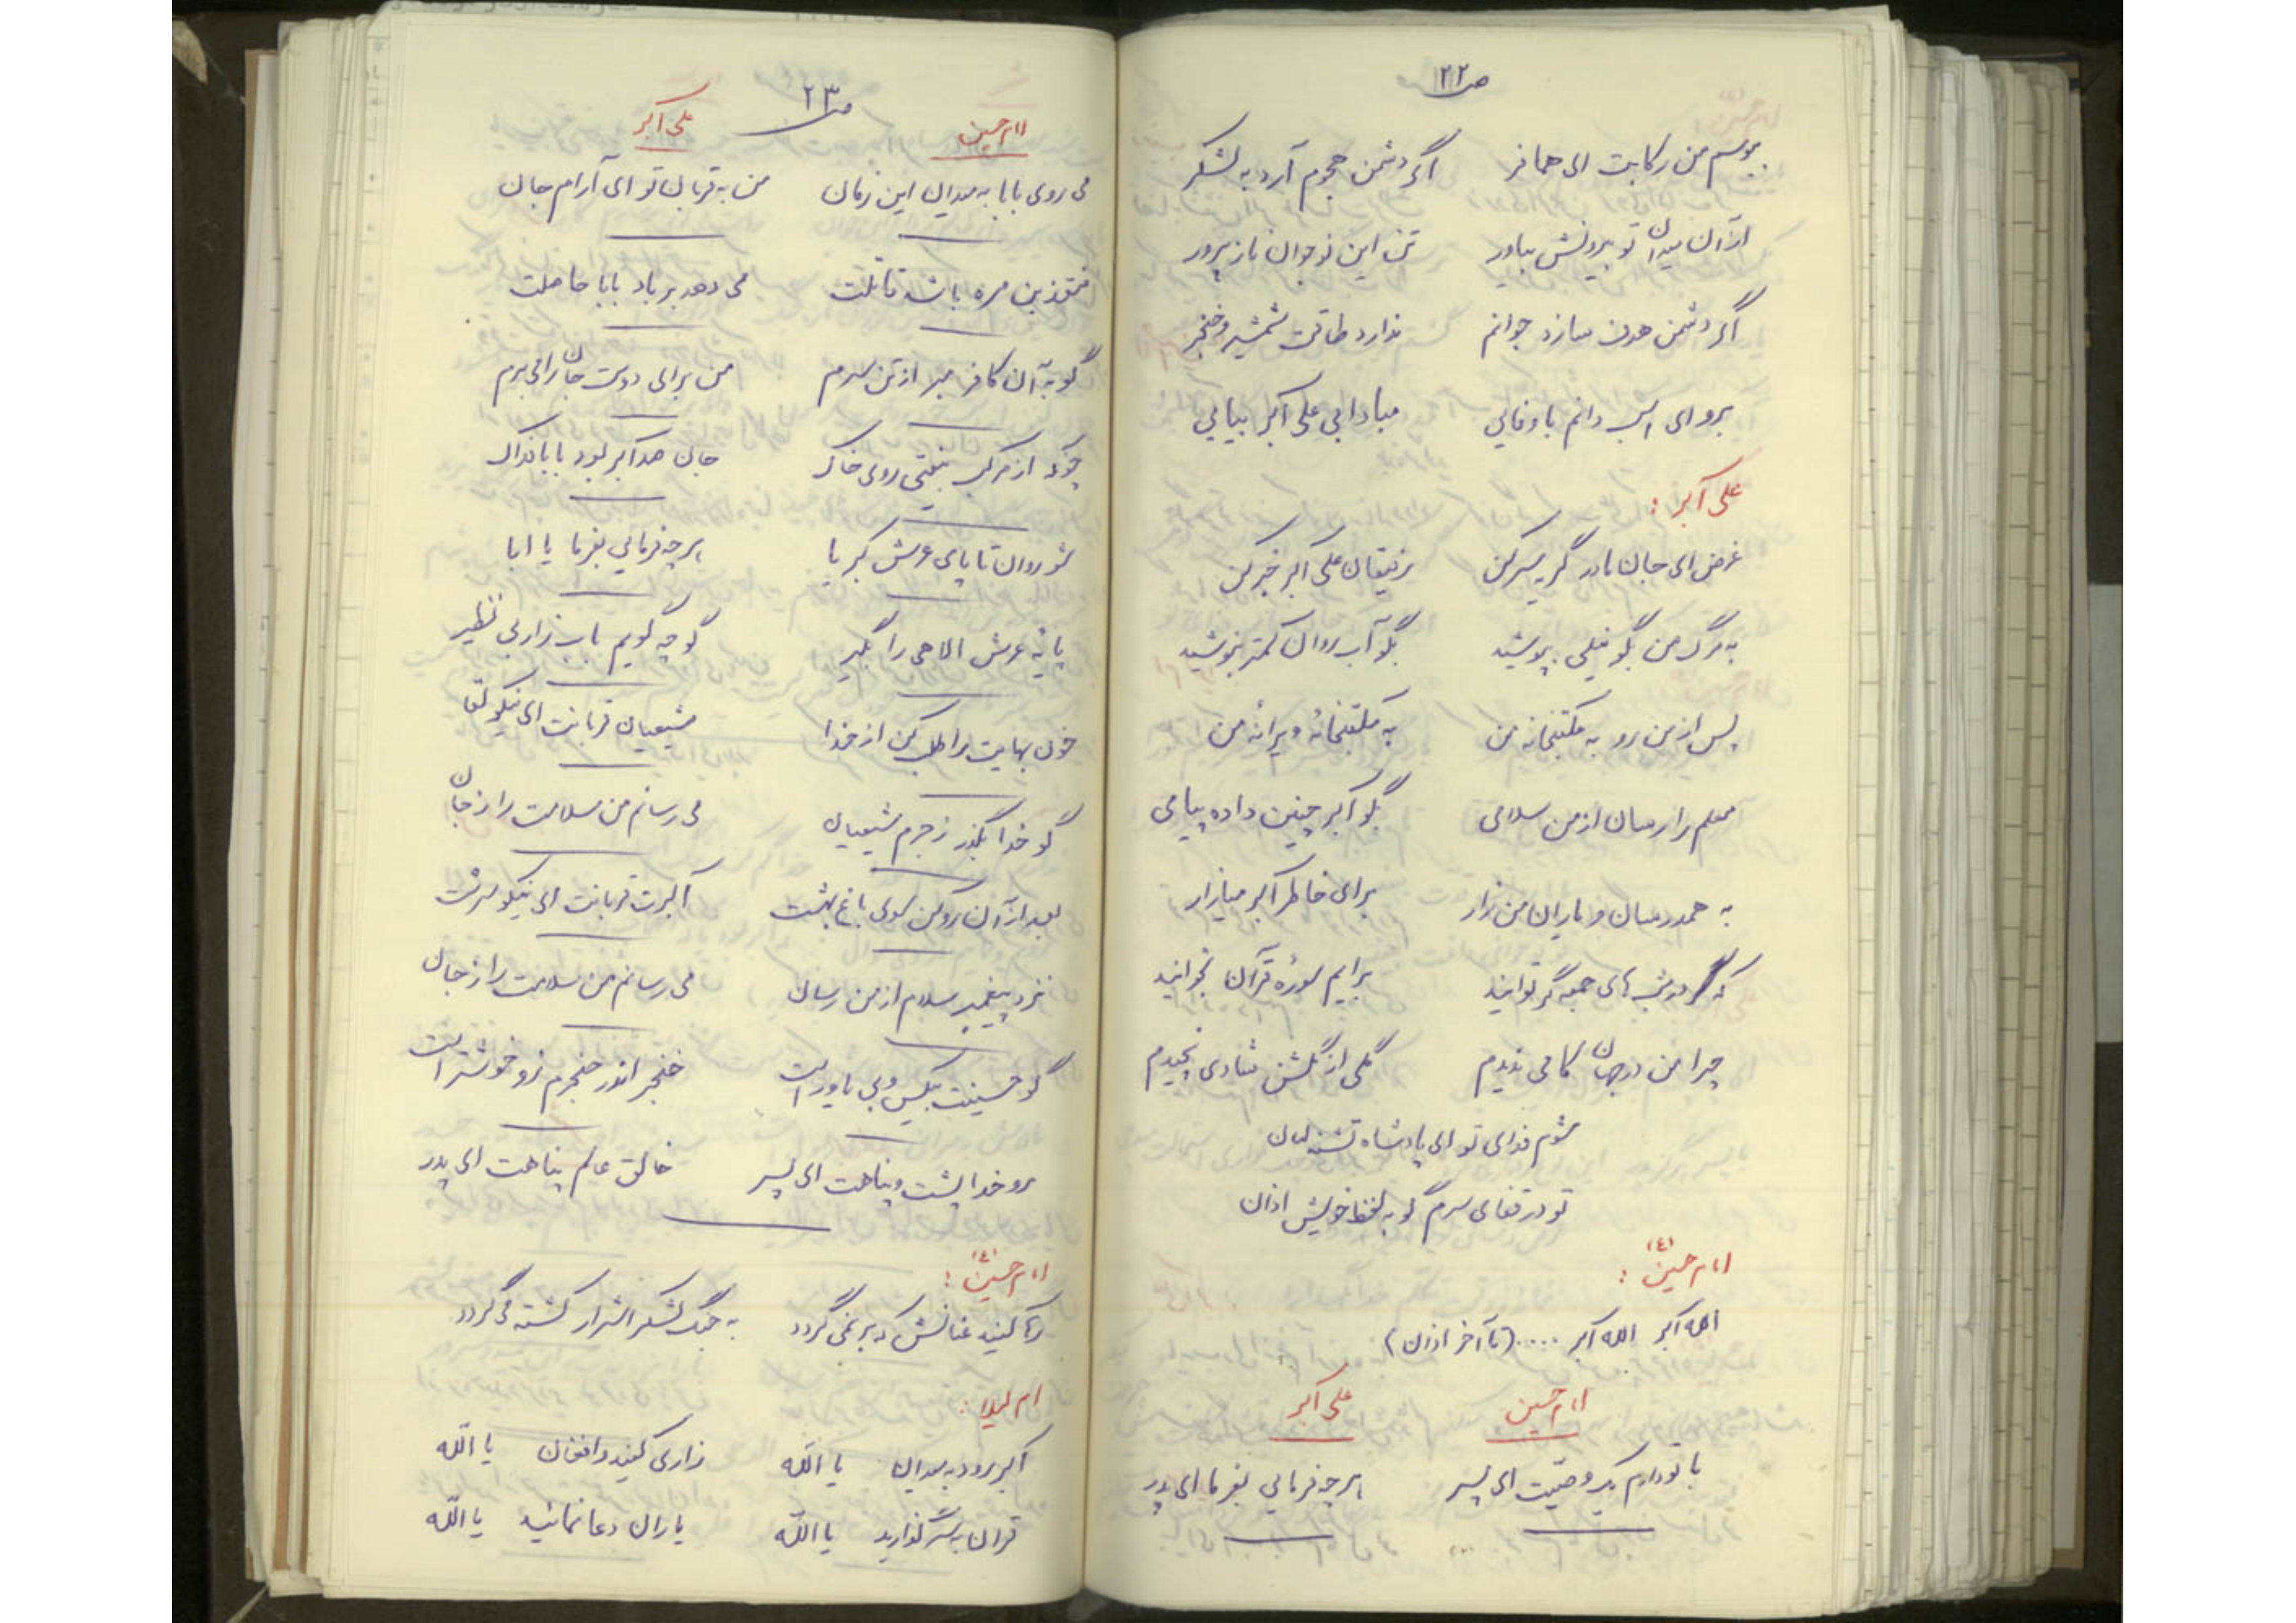 ص ۲۲
ببوسم من رکابت ای همافر اگر دشمن هجوم آرد به لشکر
از آن میدان تو بیرونش بیاور تن این نوجوان نازپرور
اگر دشمن هدف سازد جوانم ندارد طاقت شمشیر و خنجر
برو ای اسب دانم باوفایی مبادا بی علی اکبر بیایی
علی اکبر :
غرض ای جان مادر گریه سر کن رفیقان علی اکبر خبر کن
به مرگ من بگو نیلی بپوشید بگو آب روان کمتر بنوشید
پس از من رو به مکتبخانه من به مکتبخانهٔ ویرانهٔ من
معلم را رسان از من سلامی بگو اکبر چنین داده پیامی
به همدرسان و یاران من زار برای خاطر اکبر میازار
که در شب های جمعه گر توانید برایم سورهٔ قرآن بخوانید
چرا من در جهان کامی ندیدم گلی از گلشن شادی نچیدم
شوم فدای تو ای پادشاه تشنه لبان
تو در قفای سرم گو به لفظ خویش اذان
امام حسین (ع) :
الله اکبر الله اکبر ..... (تا آخر اذان)
امام حسین علی اکبر
با تو دارم یک وصیّت ای پسر هر چه فرمایی بفرما ای پدر
ص ۲۳
امام حسین علی اکبر
می روی بابا به میدان این زمان من به قربان تو ای آرام جان
منقذ بن مره باشد قاتلت می دهد بر باد بابا حاصلت
گو به آن کافر مبر از تن سرم من برای دوست جان را می برم
چونکه از مرکب بیفتی روی خاک جان صد اکبر بود بابا فداک
شو روان تا پای عرش کبریا هر چه فرمایی بفرما یا ابا
پایهٔ عرش الاهی را بگیر گو چه گویم باب زار بی نظیر
خون بهایت را طلب کن از خدا شیعیان قربانت ای نیکو لقا
گو خدا بگذر ز جرم شیعیان می رسانم من سلامت را ز جان
بعد از آن رو کن سوی باغ بهشت اکبرت قربانت ای نیکو سرشت
نزد پیغمبر سلام از من رسان می رسانم من سلامت را ز جان
گو حسینت بیکس و بی یاور است خنجر اندر حنجرم زو خوشتر است
برو خدا پشت و پناهت ای پسر خالق عالم پناهت ای پدر
امام حسین (ع) :
رها کنید عنانش که برنمی گردد به جنگ لشکر اشرار کشته می گردد
ام لیلا :
اکبر رود به میدان یا الله زاری کنید و افغان یا الله
قران به سر گذارید یا الله یاران دعا نمائید یا الله